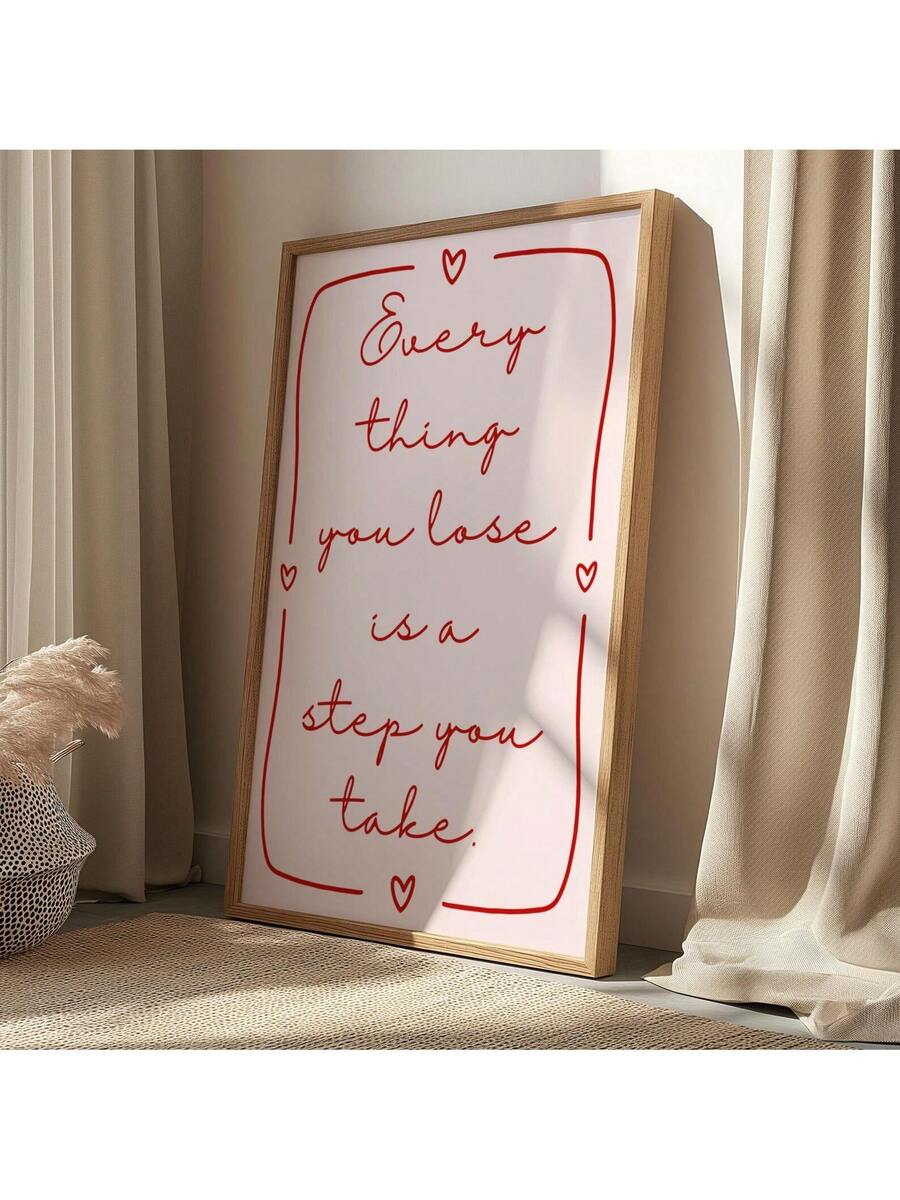 Every
thing
you lose
is a
step you
take.